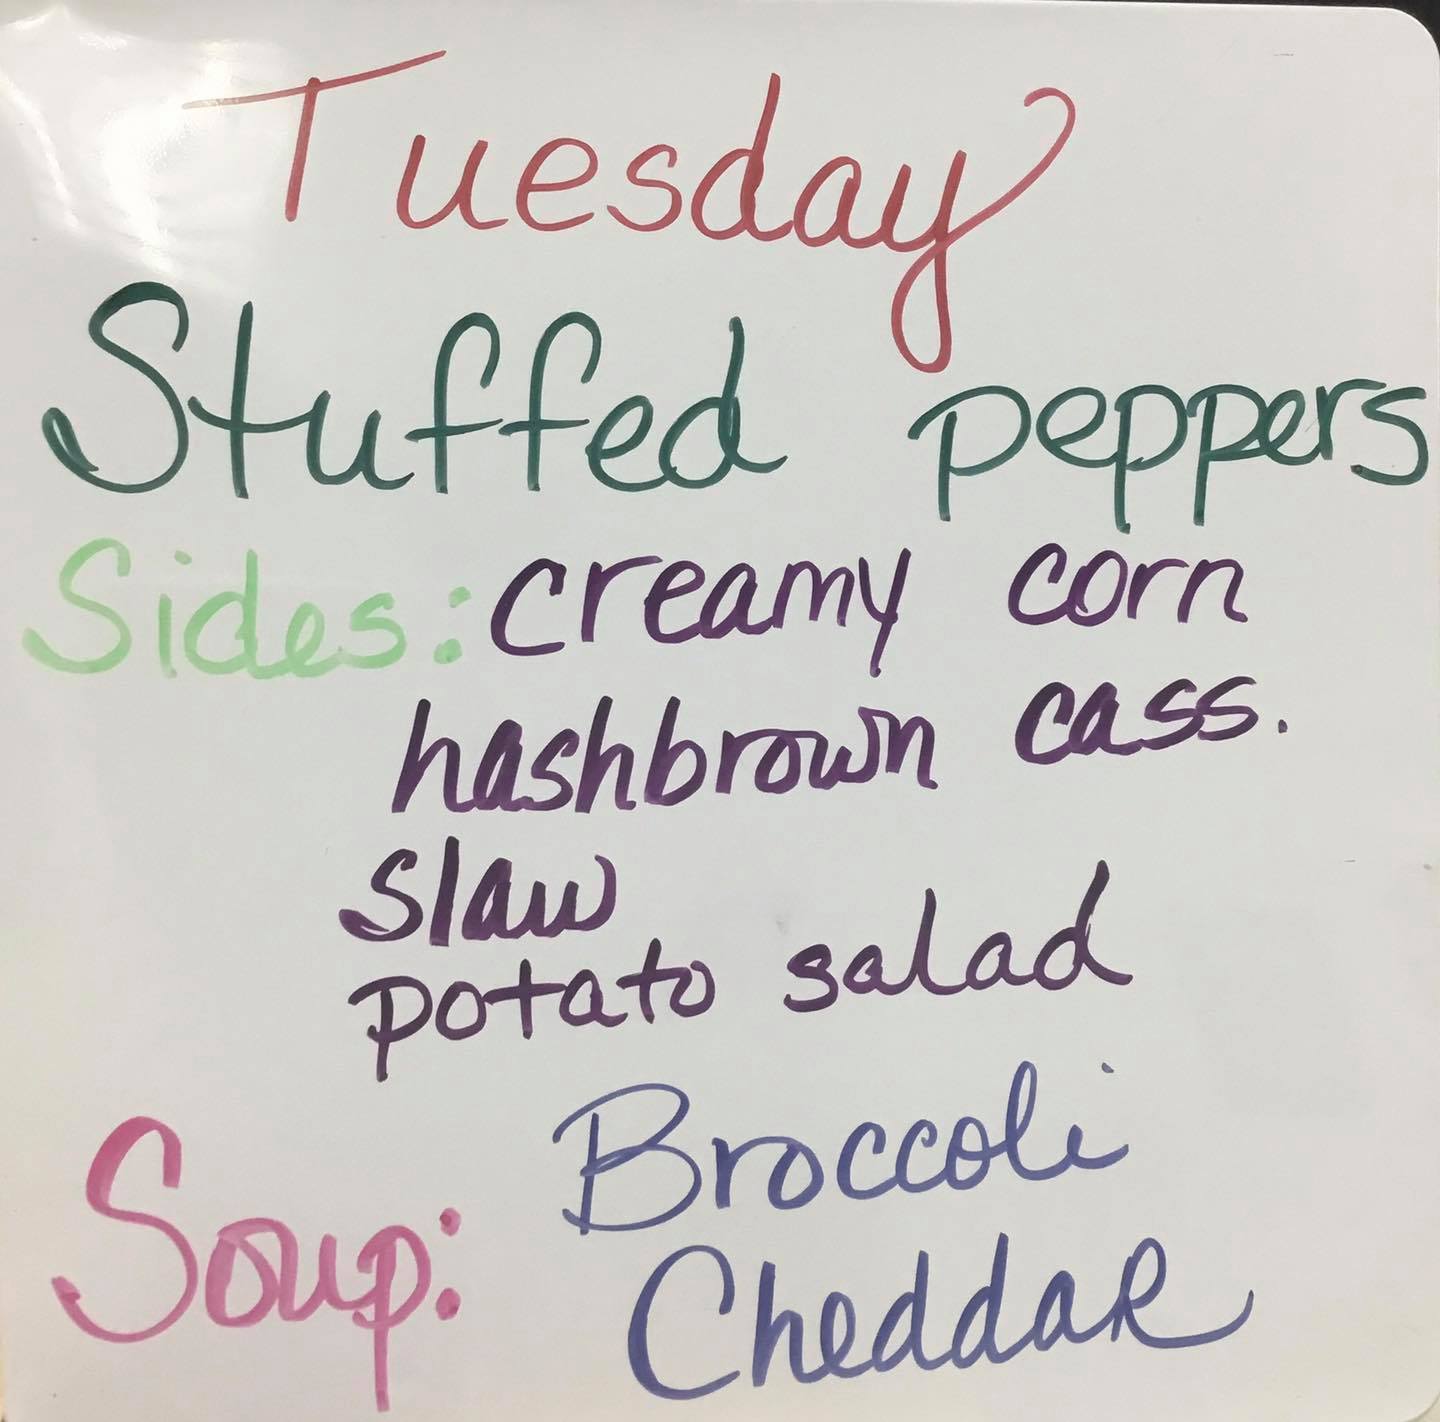 Tuesday
Stuffed peppers
Sides: creamy corn
hashbrown cass.
slaw
potato salad
Soup: Broccoli
Cheddar